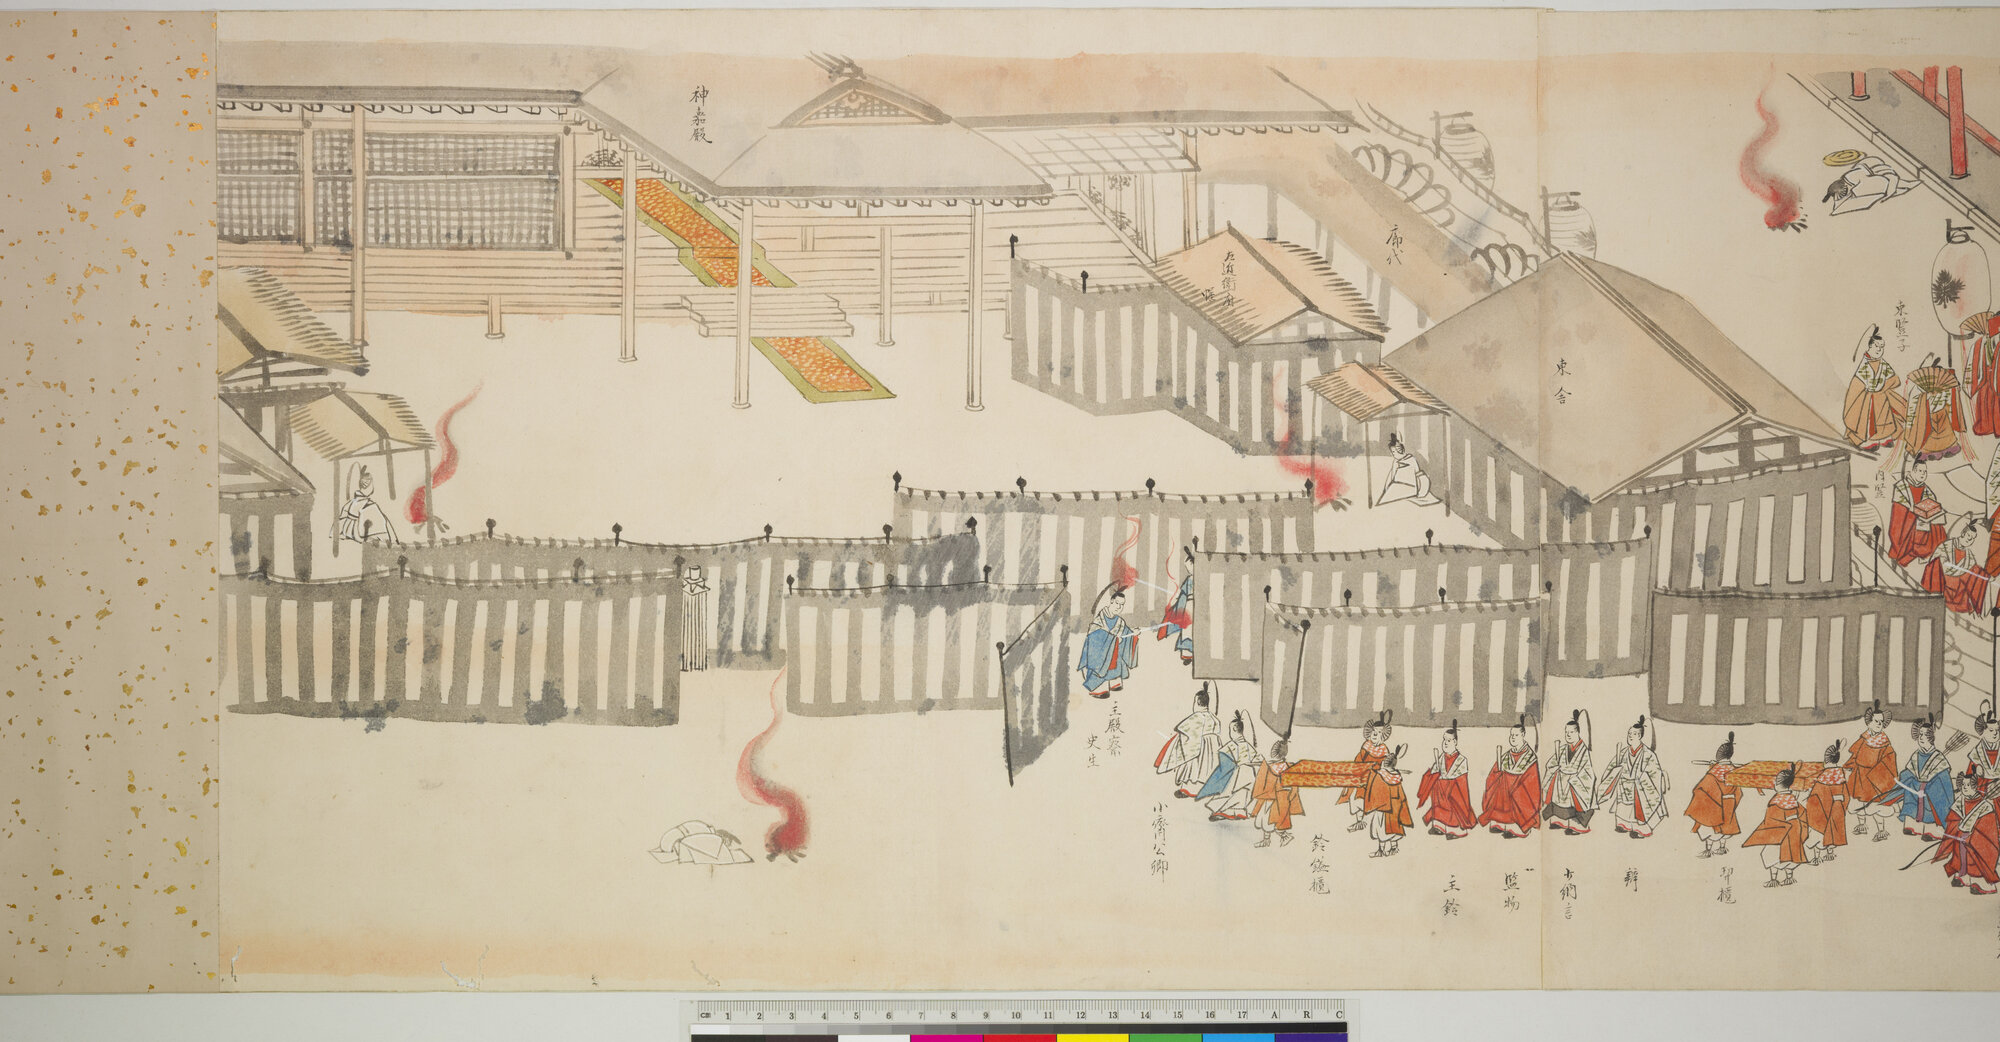 東竪子
内竪
東舎
席代
左近衛府
幄
神嘉殿
印櫃
辨
少納言
監物
主鈴
鈴鎰櫃
小齋公卿
主殿寮
史生
CM 1 2 3 4 5 6 7 8 9 10 11 12 13 14 15 16 17 A R C